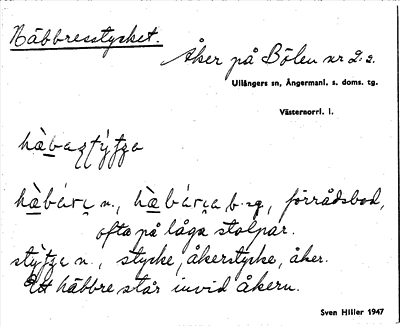 Häbbresstycket.
Åker på Bölen nr 2:2.
Ullångers sn, Ångermanl. s. doms. tg.
Västernorrl. l.
förrådsbod,
ofta på låga stolpar.
n., stycke, åkerstycke, åker.
Ett häbbre står invid åkern.
Sven Hiller 1947